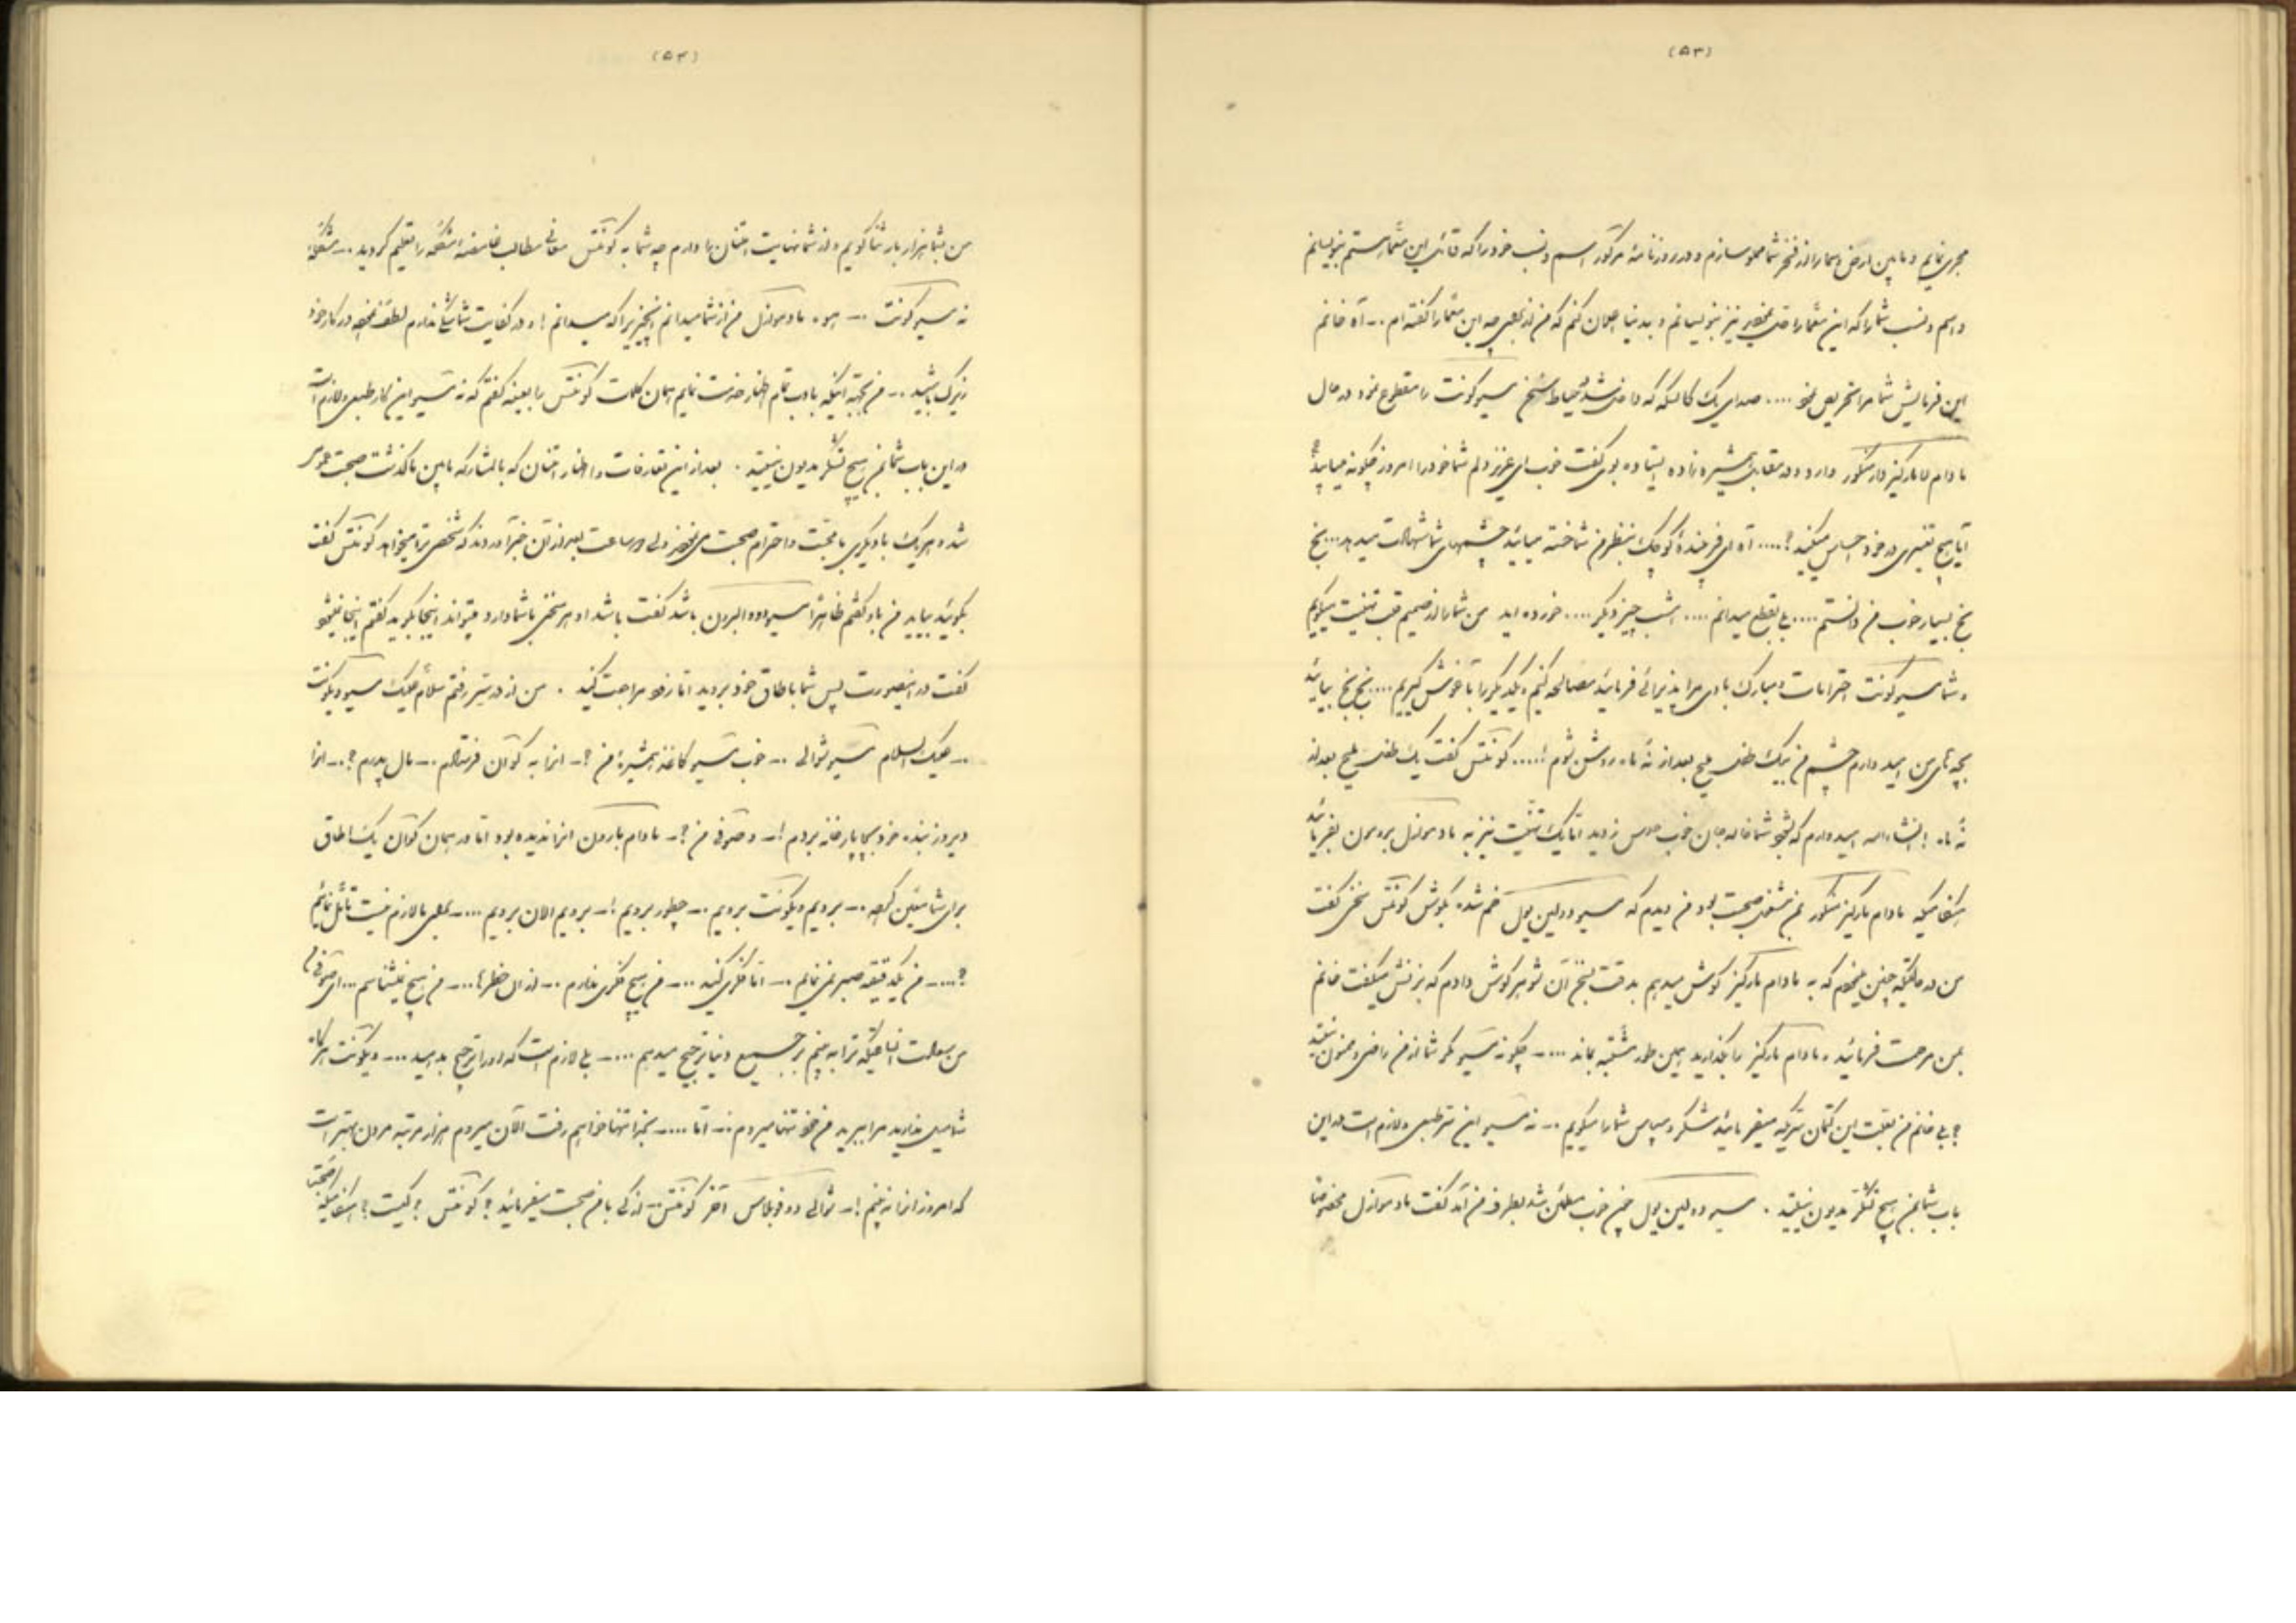 (۵۳)
مجری نمایم و مابین ارض و سما را از فخر شما مملو سازم و در روزنامهٔ مرکور اسم و نسب خود را که قائل این معمار هستم بنویسانم
و اسم و نسب شما را که این معما را نیز بنویسانم و بدنیا اعلان کنم که من از برای چه این معما را گفته‌ام .-. آه خانم
این فرمایش شما مرا تحریص نمود .... صدای یک کالسکه که داخل حیاط شد سخن مسیو کونت را مقطوع نمود در حال
مادام لامارکیز دارسکور وارد و در مقابل همشیره زاده ایستاده بوی گفت خوب ای عزیز دلم شما خود را امروز چگونه میابید؟
آیا هیچ تغییری در خود احساس میکنید؟.... آه ای فرخندهٔ کوچک بنظر من شناخته میآید چشمهای شما شهادت میدهد... بخ
بخ بسیار خوب من دانستم .... بی بقطع میدانم .... امشب چیز دیگر .... خورده‌اید من شما را از صمیم قلب تهنیت میگویم
و شما مسیو کونت احترامات و مبارک بادی مرا پذیرائی فرمائید مصالحه کنیم و یکدیگر را بآغوش گیریم .... بخ بخ بیائید
بچه‌های من امید دارم چشم من بیک طفل ملیح بعد از نه ماه روشن شوم!..... کونتس گفت یک طفل ملیح بعد از
نه ماه! انشاءالله امیدوارم که شما خاله جان خوب حدس زدید اما یک تهنیت نیز به مادموازل بفرمائید
هنگامیکه مادام مارکیز دسکور بمن مشغول صحبت بود من دیدم که مسیو دولین یول خم شده بگوش کونتس سخنی گفت
من در حالتیکه چنین که به مادام مارکیز گوش میدهم بدقت بسخن آن شوهر گوش دادم که بزنش میگفت خانم
بمن مرحمت فرمائید و مادام مارکیز را بگذارید همین طور مشتبه بماند ....- چگونه مسیو مگر شما از من راضی و ممنون نیستید
؟ بلی خانم من بعلت این کتمان سریکه میفرمائید تشکر و سپاس شما را میگویم .-. نه مسیو این سر طبیعی و لازم است در این
باب شما بمن هیچ تشکر مدیون نیستید . مسیو دولین یول چون خوب مطمئن شد بطرف من آمد گفت مادموازل مخصوصا
(۵۴)
من بشما هزار بار ثنا گویم و از شما نهایت امتنان را دارم چه شما به کونتس معانی مطالب غامضه را تعلیم کردید .-.
نه مسیو کونت .-. هو. مادموازل من از شما میدانم آنچیزیرا که میدانم! و در کفایت شما شک ندارم لطف در کار خود
زیرک باشید .-. من بجهة اینکه بادب تمام اظهار خدمت نمایم همان کلمات کونتس را بعینه گفتم که نه مسیو این کار طبیعی و لازم است
در این باب شما بمن هیچ تشکر مدیون نیستید . بعد از این تعارفات و اظهار امتنان که بالمشارکه مابین ما گذشت صحبت
شده هر یک با دیگری با محبت و احترام صحبت می ولی در ساعت بعد از آن خبر آوردند که شخصی ترا میخواهد کونتس گفت
بگوئید بیاید من باو گفتم ظاهراً مسیو دووالبرون باشد گفت باشد او هر سخنی با شما دارد میتواند اینجا بگوید گفتم اینجا نمیشود
گفت در اینصورت پس شما باطاق خود بروید اما زود مراجعت کنید . من از در بیرون رفتم سلام علیک مسیو ویکونت
.-. علیک السلام مسیو شوالی .-. خوب مسیو کاغذ همشیرهٔ من ؟-. انرا به کوان فرستادم .-. مال پدرم ؟.-. انرا
دیروز بنده خود بچاپارخانه بردم !-. و صوفی من ؟-. مادام بارون انرا ندیده بود اما در همان کوان یک اطاق
برای شما معین کرده .-. برویم ویکونت برویم .-. چطور برویم !-. برویم الان برویم ...-. بلی ما لازم نیست تأمل نمائیم
؟....-. من یکدقیقه صبر نمی‌نمایم .-. اما فکری کنید ...-. من هیچ فکری ندارم .-. از ان خطرها ...-. من هیچ نمیشناسم ... ای صوفی
من بعلت آنکه ترا به بینم بر جمیع دنیا ترجیح میدهم ....-. بلی لازم است که او را ترجیح بدهید ...-. ویکونت هرگاه
شما میل ندارید مرا ببرید من خود تنها میروم .-. اما ....-. بخدا تنها خواهم رفت الان میروم هزار مرتبه مردن بهتر است
که امروز انرا نه بینم !-. شوالی دو فوبلاس آخر کونتس .-. از کی با من صحبت میفرمائید؟ کونتس؟ کیست؟